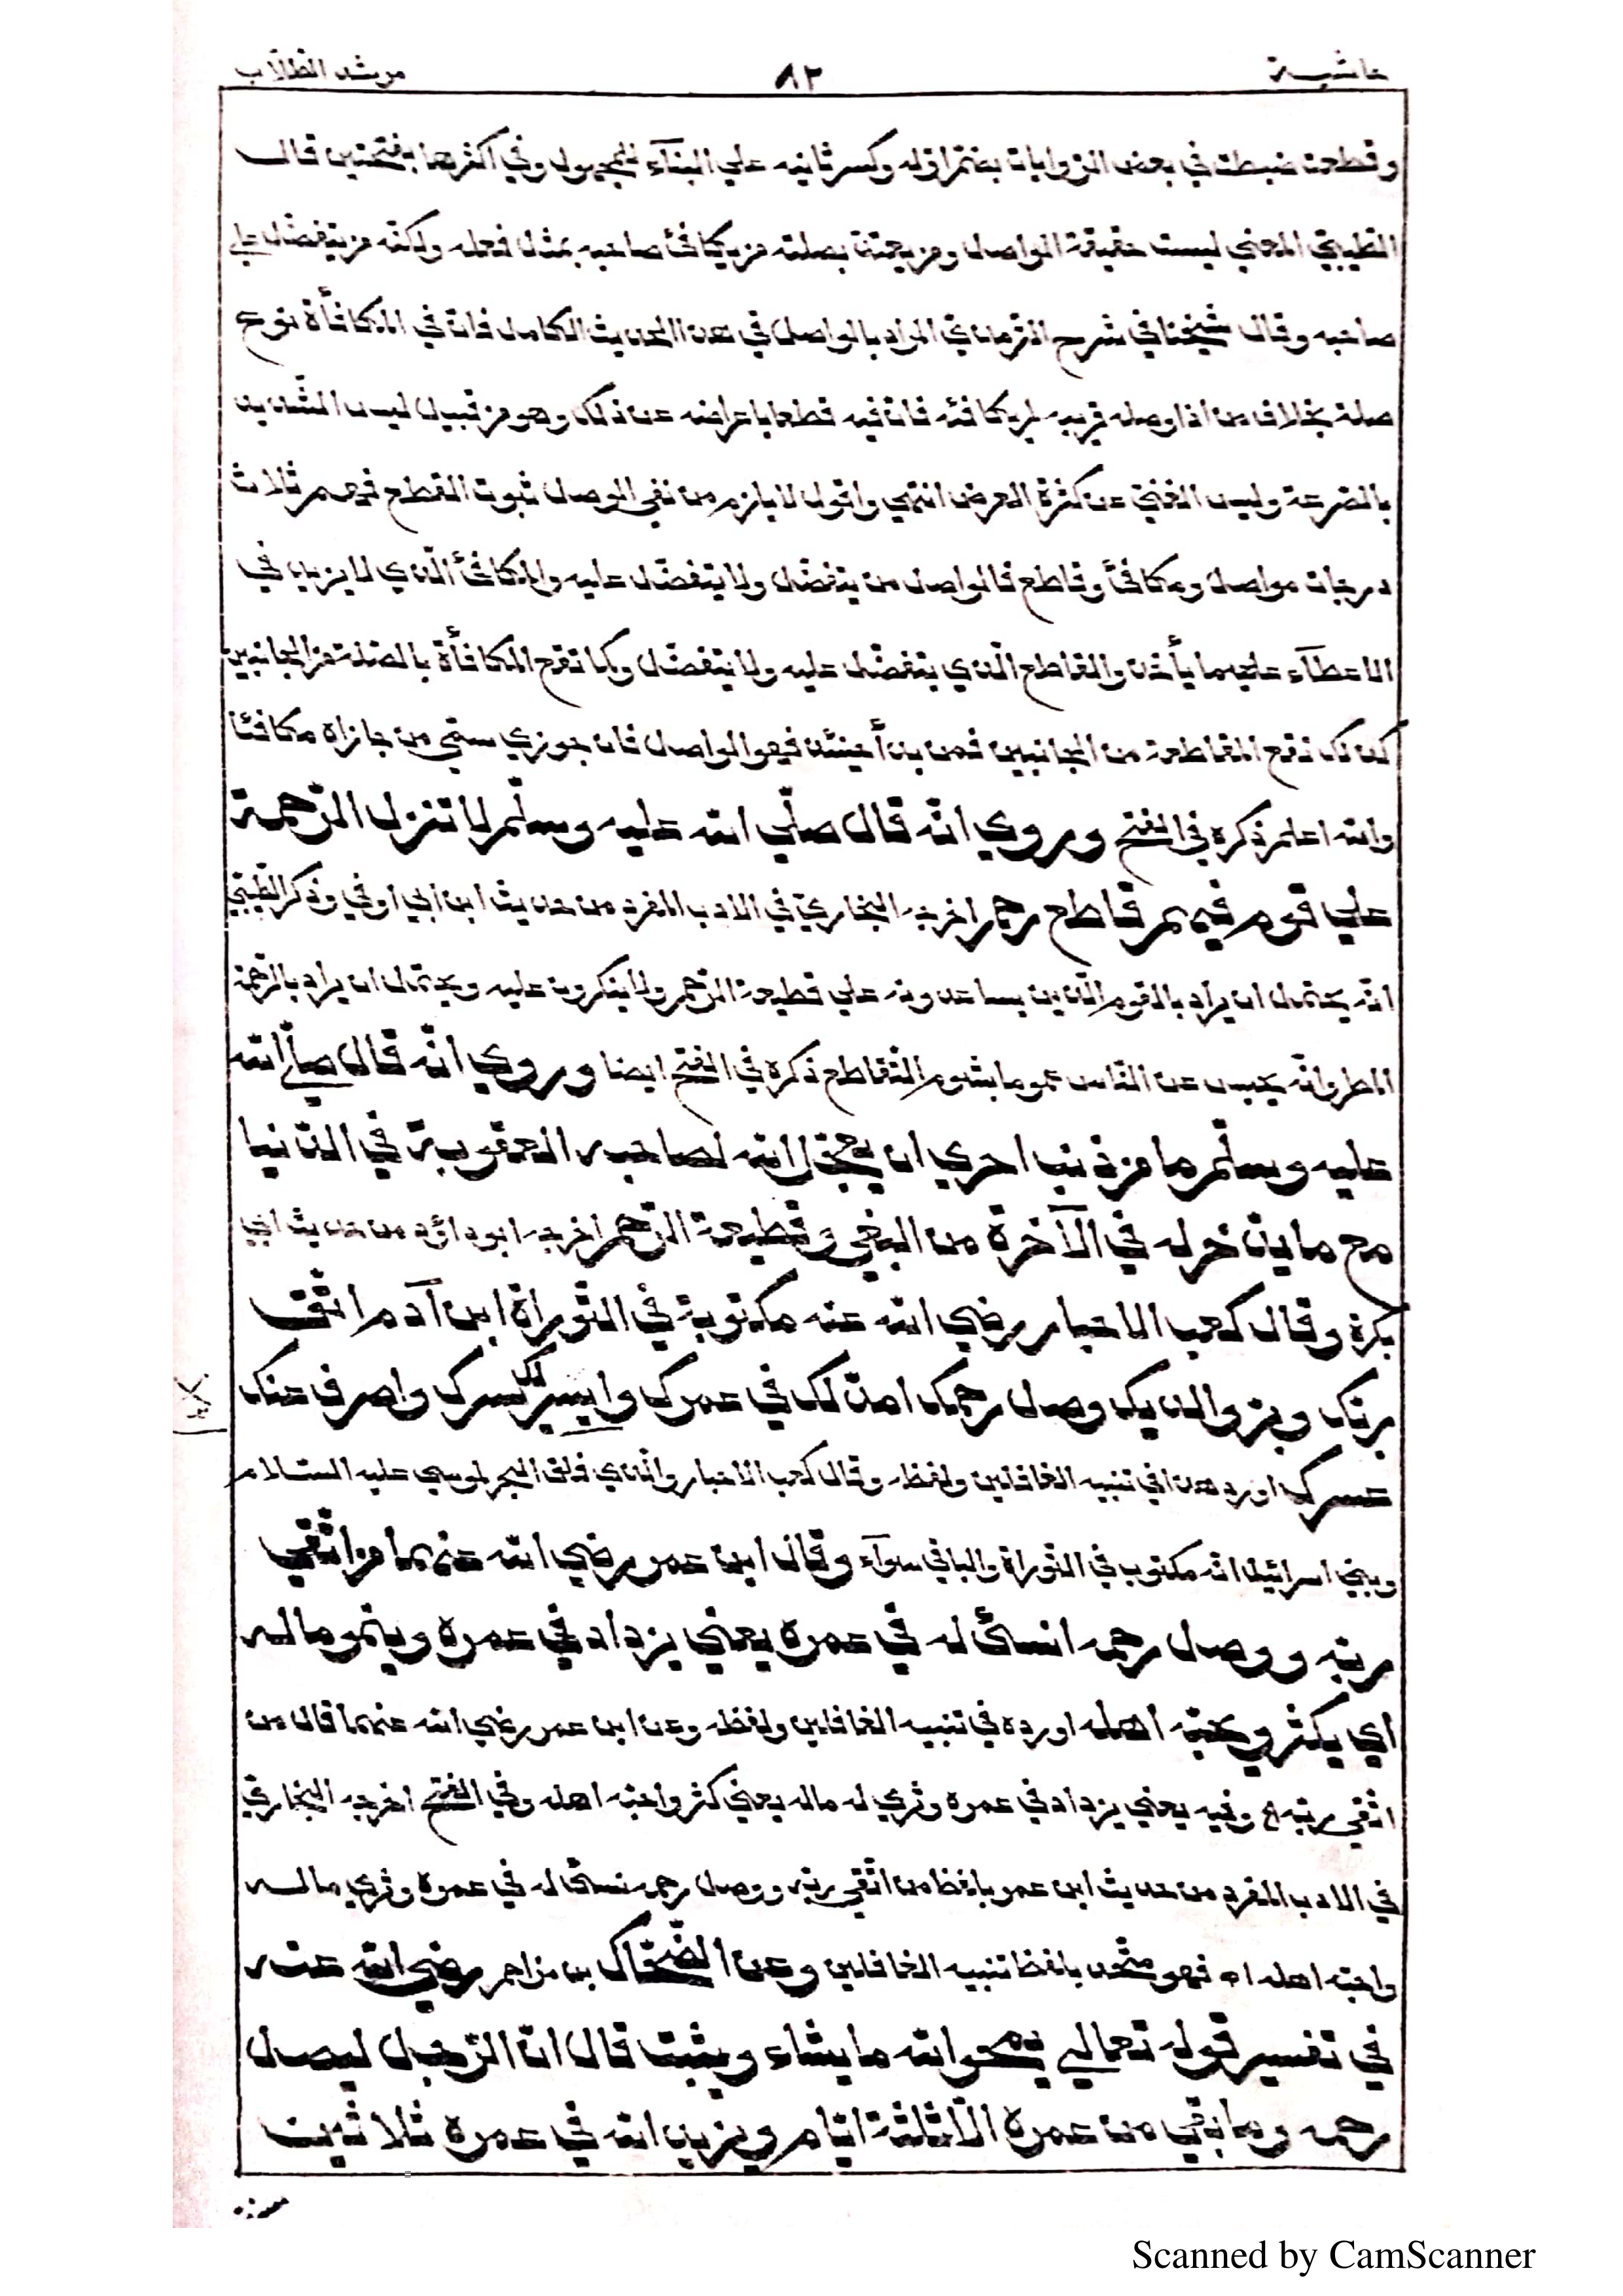 حاشية ٨٢ مرشد الطلّاب
وقطعت ضبطت في بعض الرّوايات بضمّ اوّله وكسر ثانيه علي البنآء للمجهول وفي اكثرها بفتحتين قال
الطّيبيّ المعني ليست حقيقة الواصل ومن يعتدّ بصلته من يكافئ صاحبه بمثل فعله ولكنّه من يتفضّل علي
صاحبه وقال شيخنا في شرح التّرمذيّ المراد بالواصل في هذا الحديث الكامل فانّ في المكافأة نوع
صلة بخلاف من اذا وصله قريبه لم يكافئه فانّ فيه قطعا باعراضه عن ذلك وهو من قبيل ليس الشّديد
بالصّرعة وليس الغنيّ عن كثرة العرض انتهي واقول لا يلزم من نفي الوصل ثبوت القطع فهم ثلاث
درجات مواصل ومكافئ وقاطع فالواصل من يتفضّل ولا يتفضّل عليه والمكافئ الّذي لا يزيد في
الاعطآء علي ما يأخذ والقاطع الّذي يتفضّل عليه ولا يتفضّل وكما تقع المكافأة بالصّلة من الجانبين
كذلك تقع المقاطعة من الجانبين فمن بدأ حينئذ فهو الواصل فان جوزي سمّي من جازاه مكافئا
والله اعلم ذكره في الفتح وروي انّه قال صلّي الله عليه وسلّم لا تنزل الرّحمة
علي قوم فيهم قاطع رحم اخرجه البخاريّ في الادب المفرد من حديث ابن ابي اوفي وذكر الطّيبيّ
انّه يحتمل ان يراد بالقوم الّذين يساعدونه علي قطيعة الرّحم ولا ينكرون عليه ويحتمل ان يراد بالرّحمة
المطر وانّه يحبس عن النّاس عموما بشوم التّقاطع ذكره في الفتح ايضا وروي انّه قال صلّي الله
عليه وسلّم ما من ذنب احري ان يعجّل الله لصاحبه العقوبة في الدّنيا
مع ما يدّخر له في الآخرة من البغي وقطيعة الرّحم اخرجه ابو داؤد من حديث ابي
بكرة وقال كعب الاحبار رضي الله عنه مكتوبة في التّوراة ابن آدم اتّق
ربّك وبرّ والديك وصل رحمك امدّ لك في عمرك وايسّر لك يسرك واصرف عنك
عسرك اورد هذا في تنبيه الغافلين ولفظه وقال كعب الاحبار والّذي فلق البحر لموسي عليه السّلام
وبني اسرائيل انّه مكتوب في التّوراة والباقي سوآء وقال ابن عمر رضي الله عنهما من اتّقي
ربّه ووصل رحمه انسئ له في عمره يعني يزداد في عمره وينمو ماله
اي يكثر ويحبّه اهله اورده في تنبيه الغافلين ولفظه وعن ابن عمر رضي الله عنهما قال من
اتّقي ربّه وفيه يعني يزداد في عمره وثري له ماله يعني كثر واحبّه اهله وفي الفتح اخرجه البخاريّ
في الادب المفرد من حديث ابن عمر بلفظ من اتّقي ربّه ووصل رحمه نسئ له في عمره وثري ماله
واحبّه اهله اه فهو متّحد بلفظ تنبيه الغافلين وعن الضّحّاك بن مزاحم رضي الله عنه
في تفسير قوله تعالي يمحو الله ما يشاء ويثبت قال انّ الرّجل ليصل
رحمه وما بقي من عمره الّا ثلثة ايّام ويزيد الله في عمره ثلاثين
سنة
Scanned by CamScanner